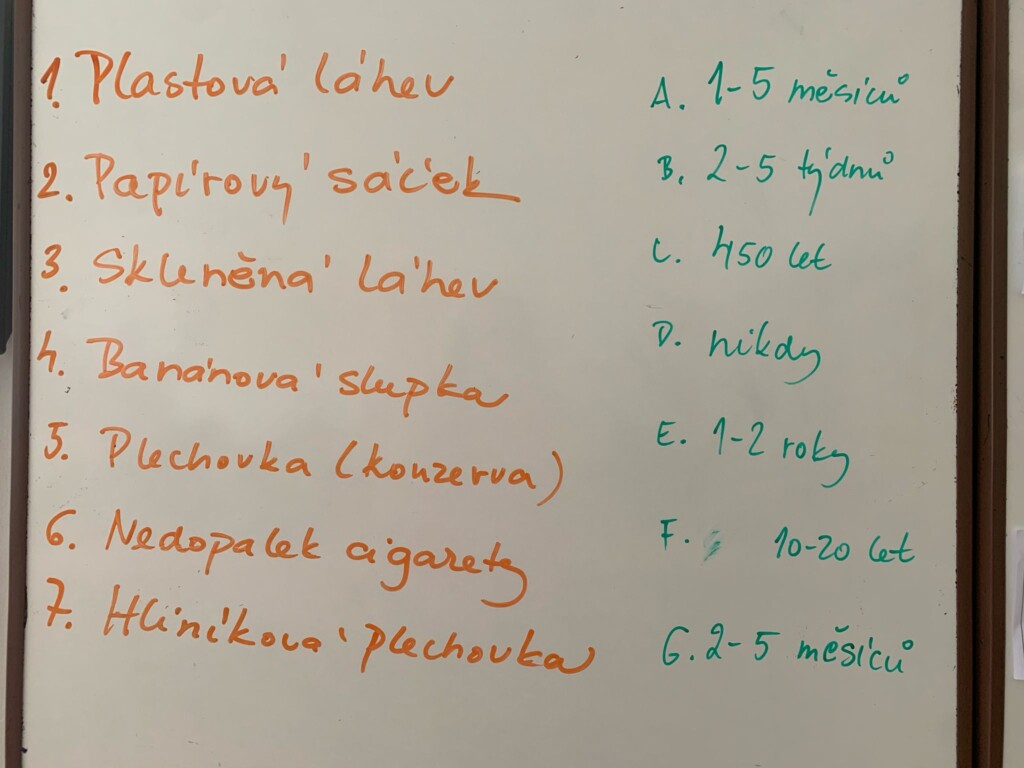 1. Plastová láhev
2. Papírový sáček
3. Skleněná láhev
4. Banánová slupka
5. Plechovka (konzerva)
6. Nedopalek cigarety
7. Hliníková plechovka
A. 1-5 měsíců
B. 2-5 týdnů
C. 450 let
D. nikdy
E. 1-2 roky
F. 10-20 let
G. 2-5 měsíců